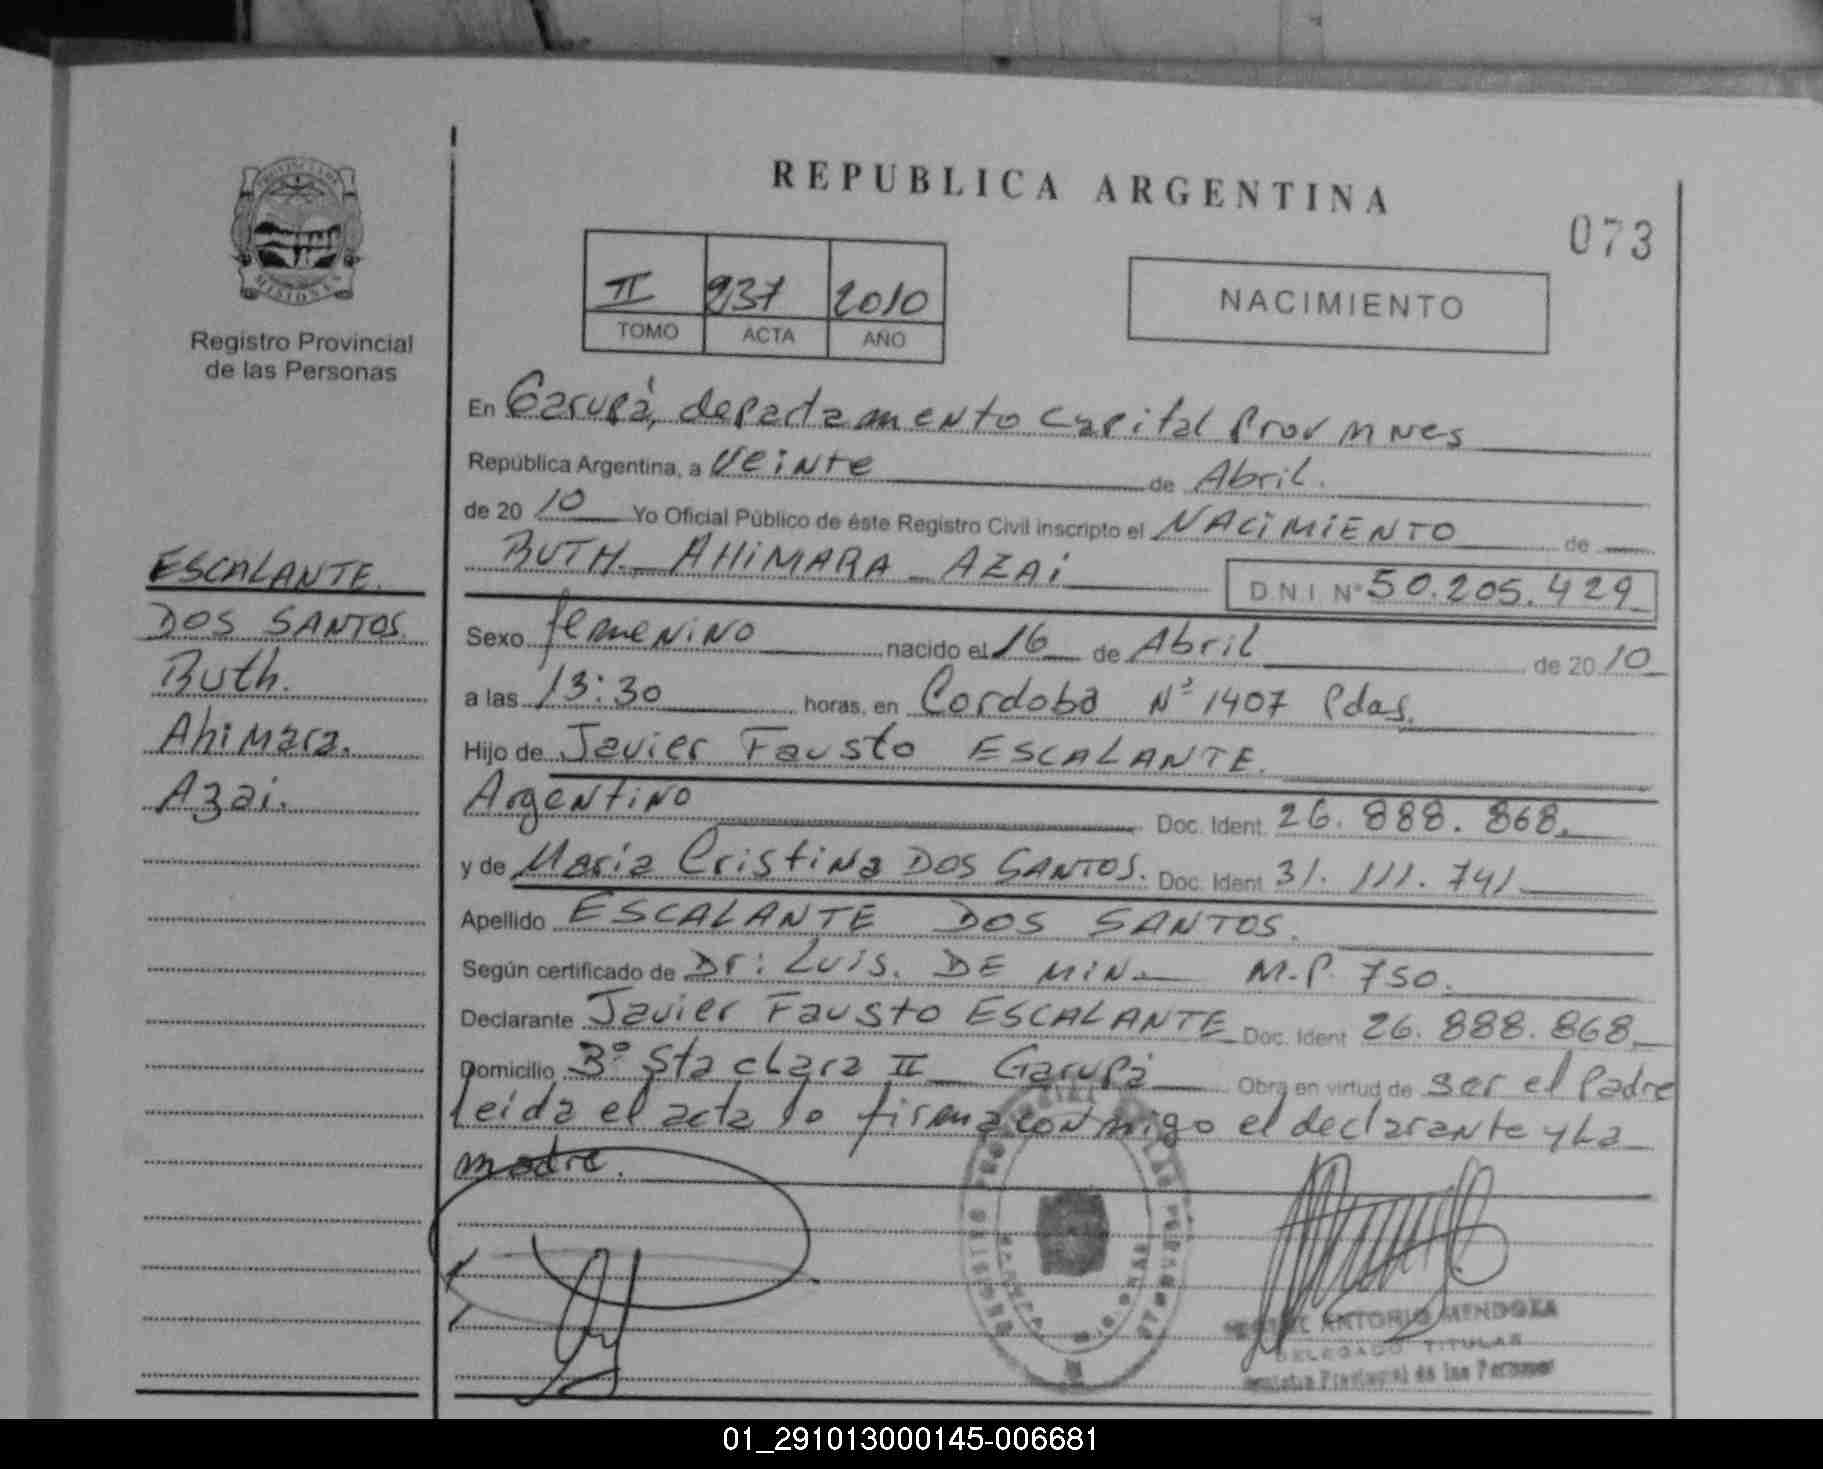 REPUBLICA ARGENTINA
073
II 937 2010
TOMO ACTA AÑO
NACIMIENTO
PROVINCIA DE
MISIONES
Registro Provincial
de las Personas
ESCALANTE
DOS SANTOS
Ruth.
Ahimara.
Azai.
En Garupá, departamento Capital Prov Mnes
República Argentina, a Veinte de Abril.
de 2010 Yo Oficial Público de éste Registro Civil inscripto el NACIMIENTO de
RUTH AHIMARA AZAI D.N.I. Nº 50.205.429
Sexo femenino nacido el 16 de Abril de 2010
a las 13:30 horas, en Cordoba Nº 1407 Pdas.
Hijo de Javier Fausto ESCALANTE.
Argentino Doc. Ident. 26.888.868.
y de María Cristina DOS SANTOS. Doc. Ident. 31.111.741
Apellido ESCALANTE DOS SANTOS.
Según certificado de Dr: LUIS. DE MIN. M.P. 750.
Declarante Javier Fausto ESCALANTE Doc. Ident. 26.888.868
Domicilio Bº Sta clara II Garupá Obra en virtud de ser el Padre
leida el acta lo firma conmigo el declarante y La
madre.
ANTONIO MENDOZA
DELEGADO TITULAR
Registro Provincial de las Personas
01_291013000145-006681